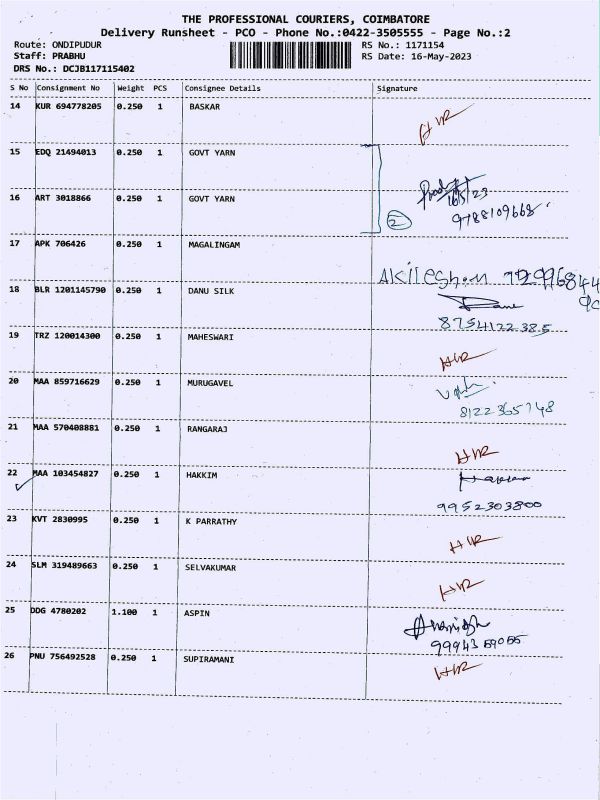 THE PROFESSIONAL COURIERS, COIMBATORE
Delivery Runsheet - PCO - Phone No.:0422-3505555 - Page No.:2
Route: ONDIPUDUR RS No.: 1171154
Staff: PRABHU RS Date: 16-May-2023
DRS No.: DCJB117115402
S No Consignment No Weight PCS Consignee Details Signature
14 KUR 694778205 0.250 1 BASKAR
15 EDQ 21494013 0.250 1 GOVT YARN
16 ART 3018866 0.250 1 GOVT YARN
16/5/23
2 9788109668
17 APK 706426 0.250 1 MAGALINGAM
18 BLR 1201145790 0.250 1 DANU SILK
8754122385
19 TRZ 120014300 0.250 1 MAHESWARI
20 MAA 859716629 0.250 1 MURUGAVEL
8122365748
21 MAA 570408881 0.250 1 RANGARAJ
22 MAA 103454827 0.250 1 HAKKIM
9952303800
23 KVT 2830995 0.250 1 K PARRATHY
24 SLM 319489663 0.250 1 SELVAKUMAR
25 DDG 4780202 1.100 1 ASPIN
26 PNU 756492528 0.250 1 SUPIRAMANI